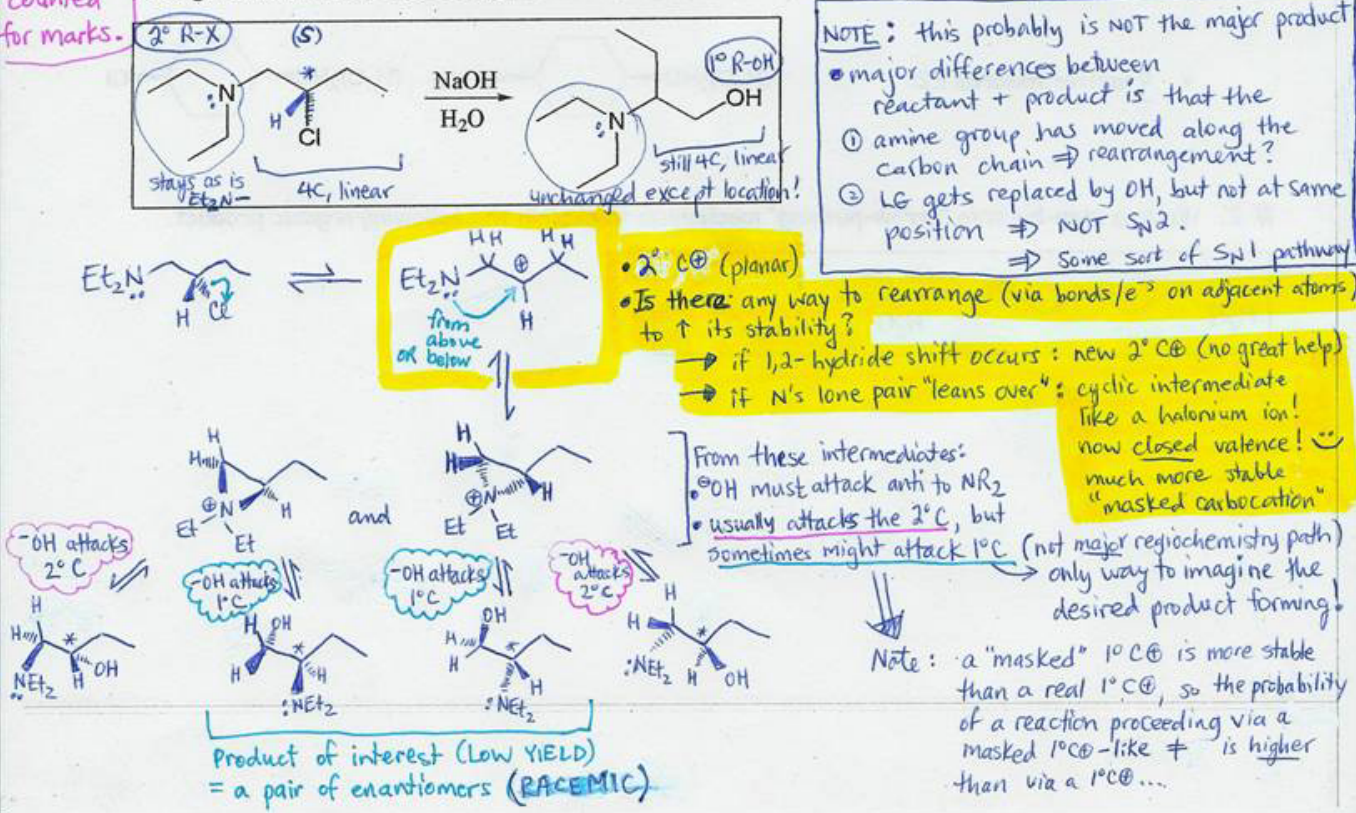 counted
for marks.
2° R-X
(S)
*
N
H
Cl
stays as is
Et₂N-
4C, linear
NaOH
H₂O
1° R-OH
OH
N
still 4C, linear
unchanged except location!
NOTE: this probably is NOT the major product
• major differences between
reactant + product is that the
① amine group has moved along the
carbon chain ⇒ rearrangement?
② LG gets replaced by OH, but not at same
position ⇒ NOT SN2.
⇒ some sort of SN1 pathway
Et₂N
H
Cl
H H H H
Et₂N
⊕
H
from
above
or below
• 2° C⊕ (planar)
• Is there any way to rearrange (via bonds/e⁻s on adjacent atoms)
to ↑ its stability?
→ if 1,2-hydride shift occurs: new 2° C⊕ (no great help)
→ if N's lone pair "leans over": cyclic intermediate
like a halonium ion!
now closed valence!
much more stable
"masked carbocation"
H
H
⊕N
H
Et
Et
and
H
H
⊕N
H
Et
Et
From these intermediates:
• ⊖OH must attack anti to NR₂
• usually attacks the 2°C, but
sometimes might attack 1°C (not major regiochemistry path)
→ only way to imagine the
desired product forming!
-OH attacks
2° C
-OH attacks
1°C
-OH attacks
1°C
-OH
attacks
2°C
H
H
*
OH
NEt₂ H
H OH
*
H
H
:NEt₂
OH
H
*
H
H
:NEt₂
H
H
*
:NEt₂ H OH
Product of interest (LOW YIELD)
= a pair of enantiomers (RACEMIC)
Note: a "masked" 1° C⊕ is more stable
than a real 1° C⊕, so the probability
of a reaction proceeding via a
masked 1°C⊕-like ‡ is higher
than via a 1°C⊕...